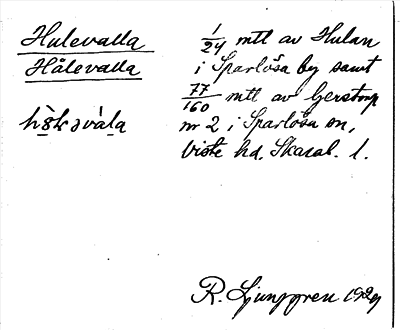 Hulevalla
Hålevalla
1/24 mtl av Hulan
i Sparlösa by samt
77/160 mtl av Gerstorp
nr 2 i Sparlösa sn,
Viste hd, Skarab. l.
R. Ljunggren 1929